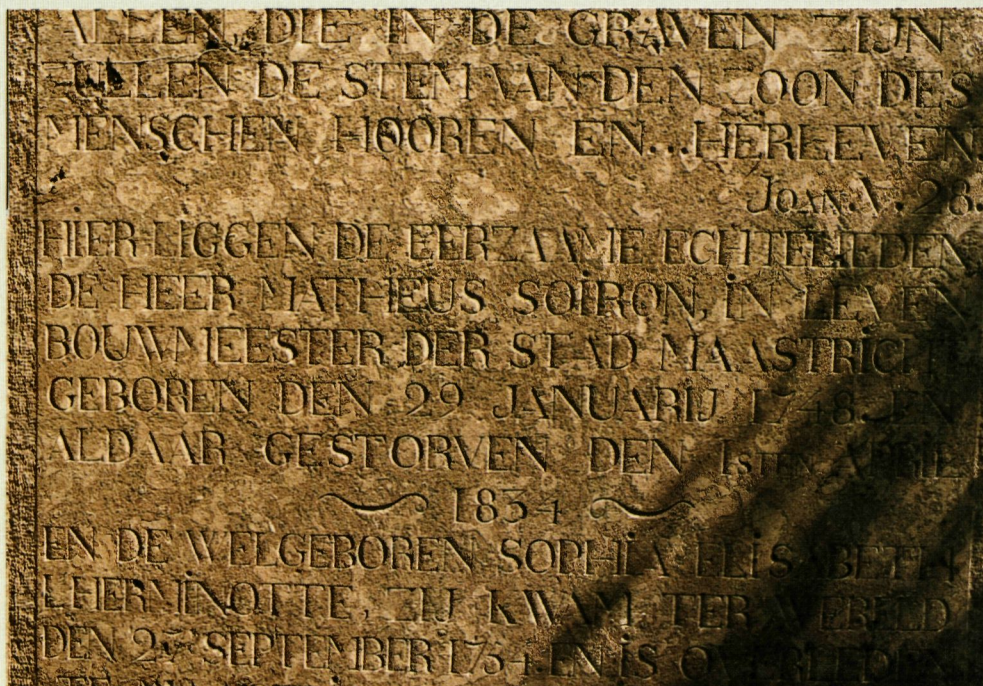 ALLEN, DIE IN DE GRAVEN ZIJN
ZULLEN DE STEM VAN DEN ZOON DES
MENSCHEN HOOREN EN...HERLEVEN.
JOAN. V. 28.
HIER LIGGEN DE EERZAAME ECHTELIEDEN
DE HEER MATHEUS SOIRON, IN LEVEN
BOUWMEESTER DER STAD MAASTRICHT
GEBOREN DEN 29 JANUARIJ 1748. EN
ALDAAR GESTORVEN DEN 1STEN APRIL
1834
EN DE WELGEBOREN SOPHIA ELISABETH
LHERMINOTTE, ZIJ KWAM TER WERELD
DEN SEPTEMBER EN IS OVERLEDEN